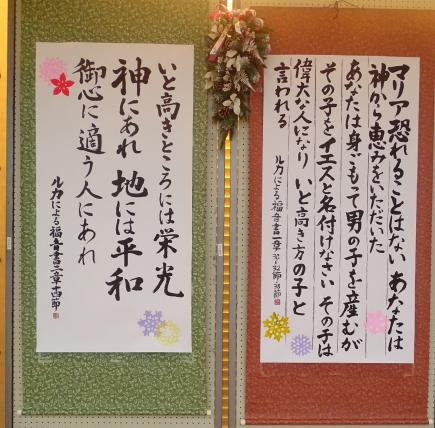 マリア恐れることはない あなたは
神から恵みをいただいた
あなたは身ごもって男の子を産むが
その子をイエスと名付けなさい その子は
偉大な人になり いと高き方の子と
言われる
ルカによる福音書一章
いと高きところには栄光
神にあれ 地には平和
御心に適う人にあれ
ルカによる福音書二章十四節